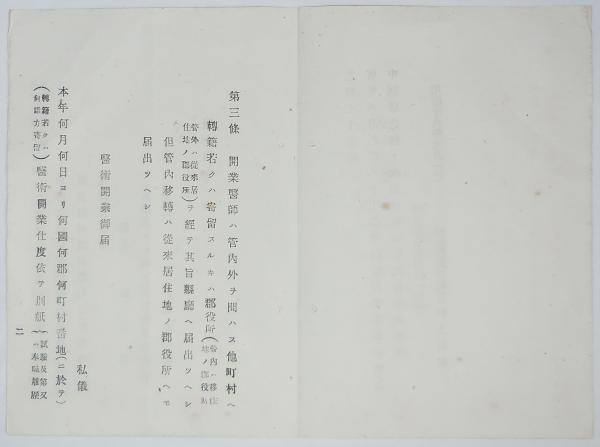 第三條　開業醫師ハ管内外ヲ問ハス他町村ヘ
轉籍若クハ寄留スルキハ郡役所(管内ハ移住地ノ郡役所
管外ハ從來居住地ノ郡役所)ヲ經テ其旨縣廳ヘ届出ツヘシ
但管内移轉ハ從來居住地ノ郡役所ヘモ
届出ツヘシ
醫術開業御届
私儀
本年何月何日ヨリ何國何郡何町村番地(ニ於テ)
(轉籍若クハ何某方寄留)醫術開業仕度依テ別紙(試驗及第又ハ奉職履歷
二